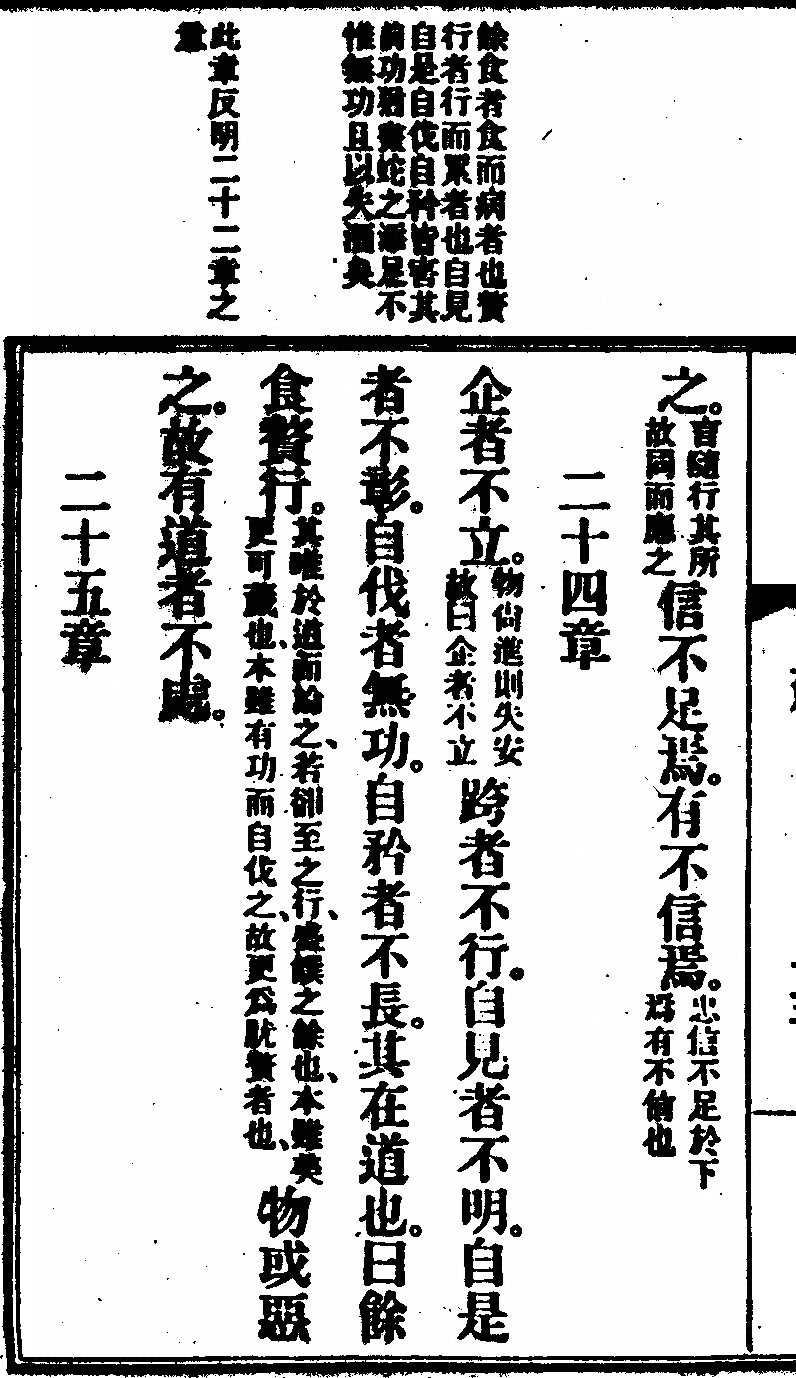 餘食者食而病者也贅
行者行而累者也自見
自是自伐自矜皆害其
前功對畫蛇之添足不
惟無功且以失酒矣
此章反明二十二章之
意
之。言隨行其所
故同而應之
信不足焉。有不信焉。忠信不足於下
焉有不信也
二十四章
企者不立。物尙進則失安
故曰企者不立
跨者不行。自見者不明。自是
者不彰。自伐者無功。自矜者不長。其在道也。曰餘
食贅行。其唯於道而論之、若郤至之行、盛饌之餘也、本雖美
更可薉也、本雖有功而自伐之、故更爲肬贅者也、
物或惡
之。故有道者不處。
二十五章